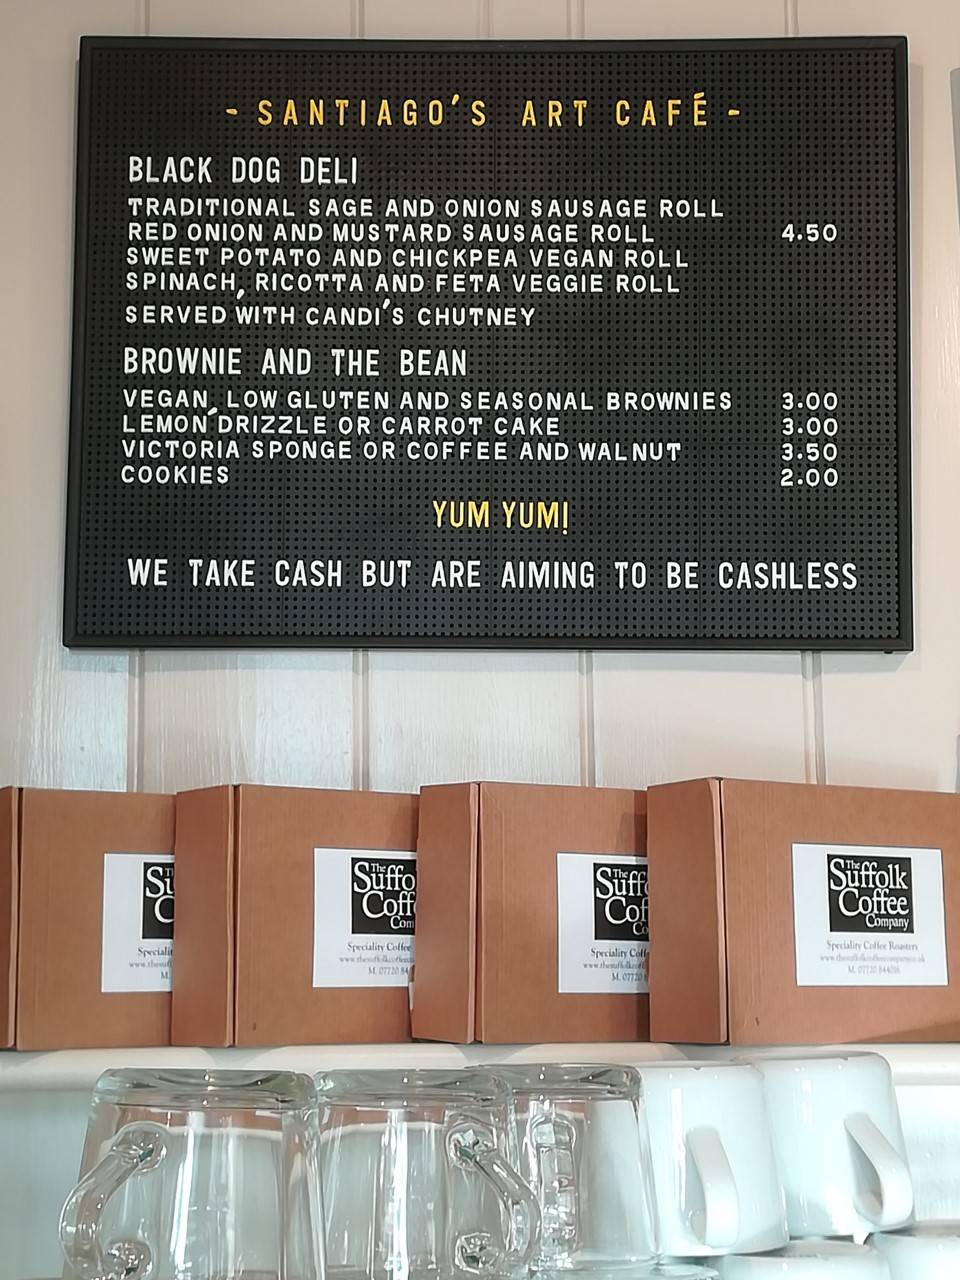 - SANTIAGO'S ART CAFÉ -
BLACK DOG DELI
TRADITIONAL SAGE AND ONION SAUSAGE ROLL
RED ONION AND MUSTARD SAUSAGE ROLL 4.50
SWEET POTATO AND CHICKPEA VEGAN ROLL
SPINACH, RICOTTA AND FETA VEGGIE ROLL
SERVED WITH CANDI'S CHUTNEY
BROWNIE AND THE BEAN
VEGAN, LOW GLUTEN AND SEASONAL BROWNIES 3.00
LEMON DRIZZLE OR CARROT CAKE 3.00
VICTORIA SPONGE OR COFFEE AND WALNUT 3.50
COOKIES 2.00
YUM YUM!
WE TAKE CASH BUT ARE AIMING TO BE CASHLESS
The
Su
C
Speciality
www.the
M.
The
Suffo
Coff
Com
Speciality Coffee
www.thesuffolkcoff
M. 07720 84
The
Suff
Cof
Co
Speciality Coffee
www.thesuffolkcoff
M. 07720
The
Suffolk
Coffee
Company
Speciality Coffee Roasters
www.thesuffolkcoffeecompany.co.uk
M. 07720 844016